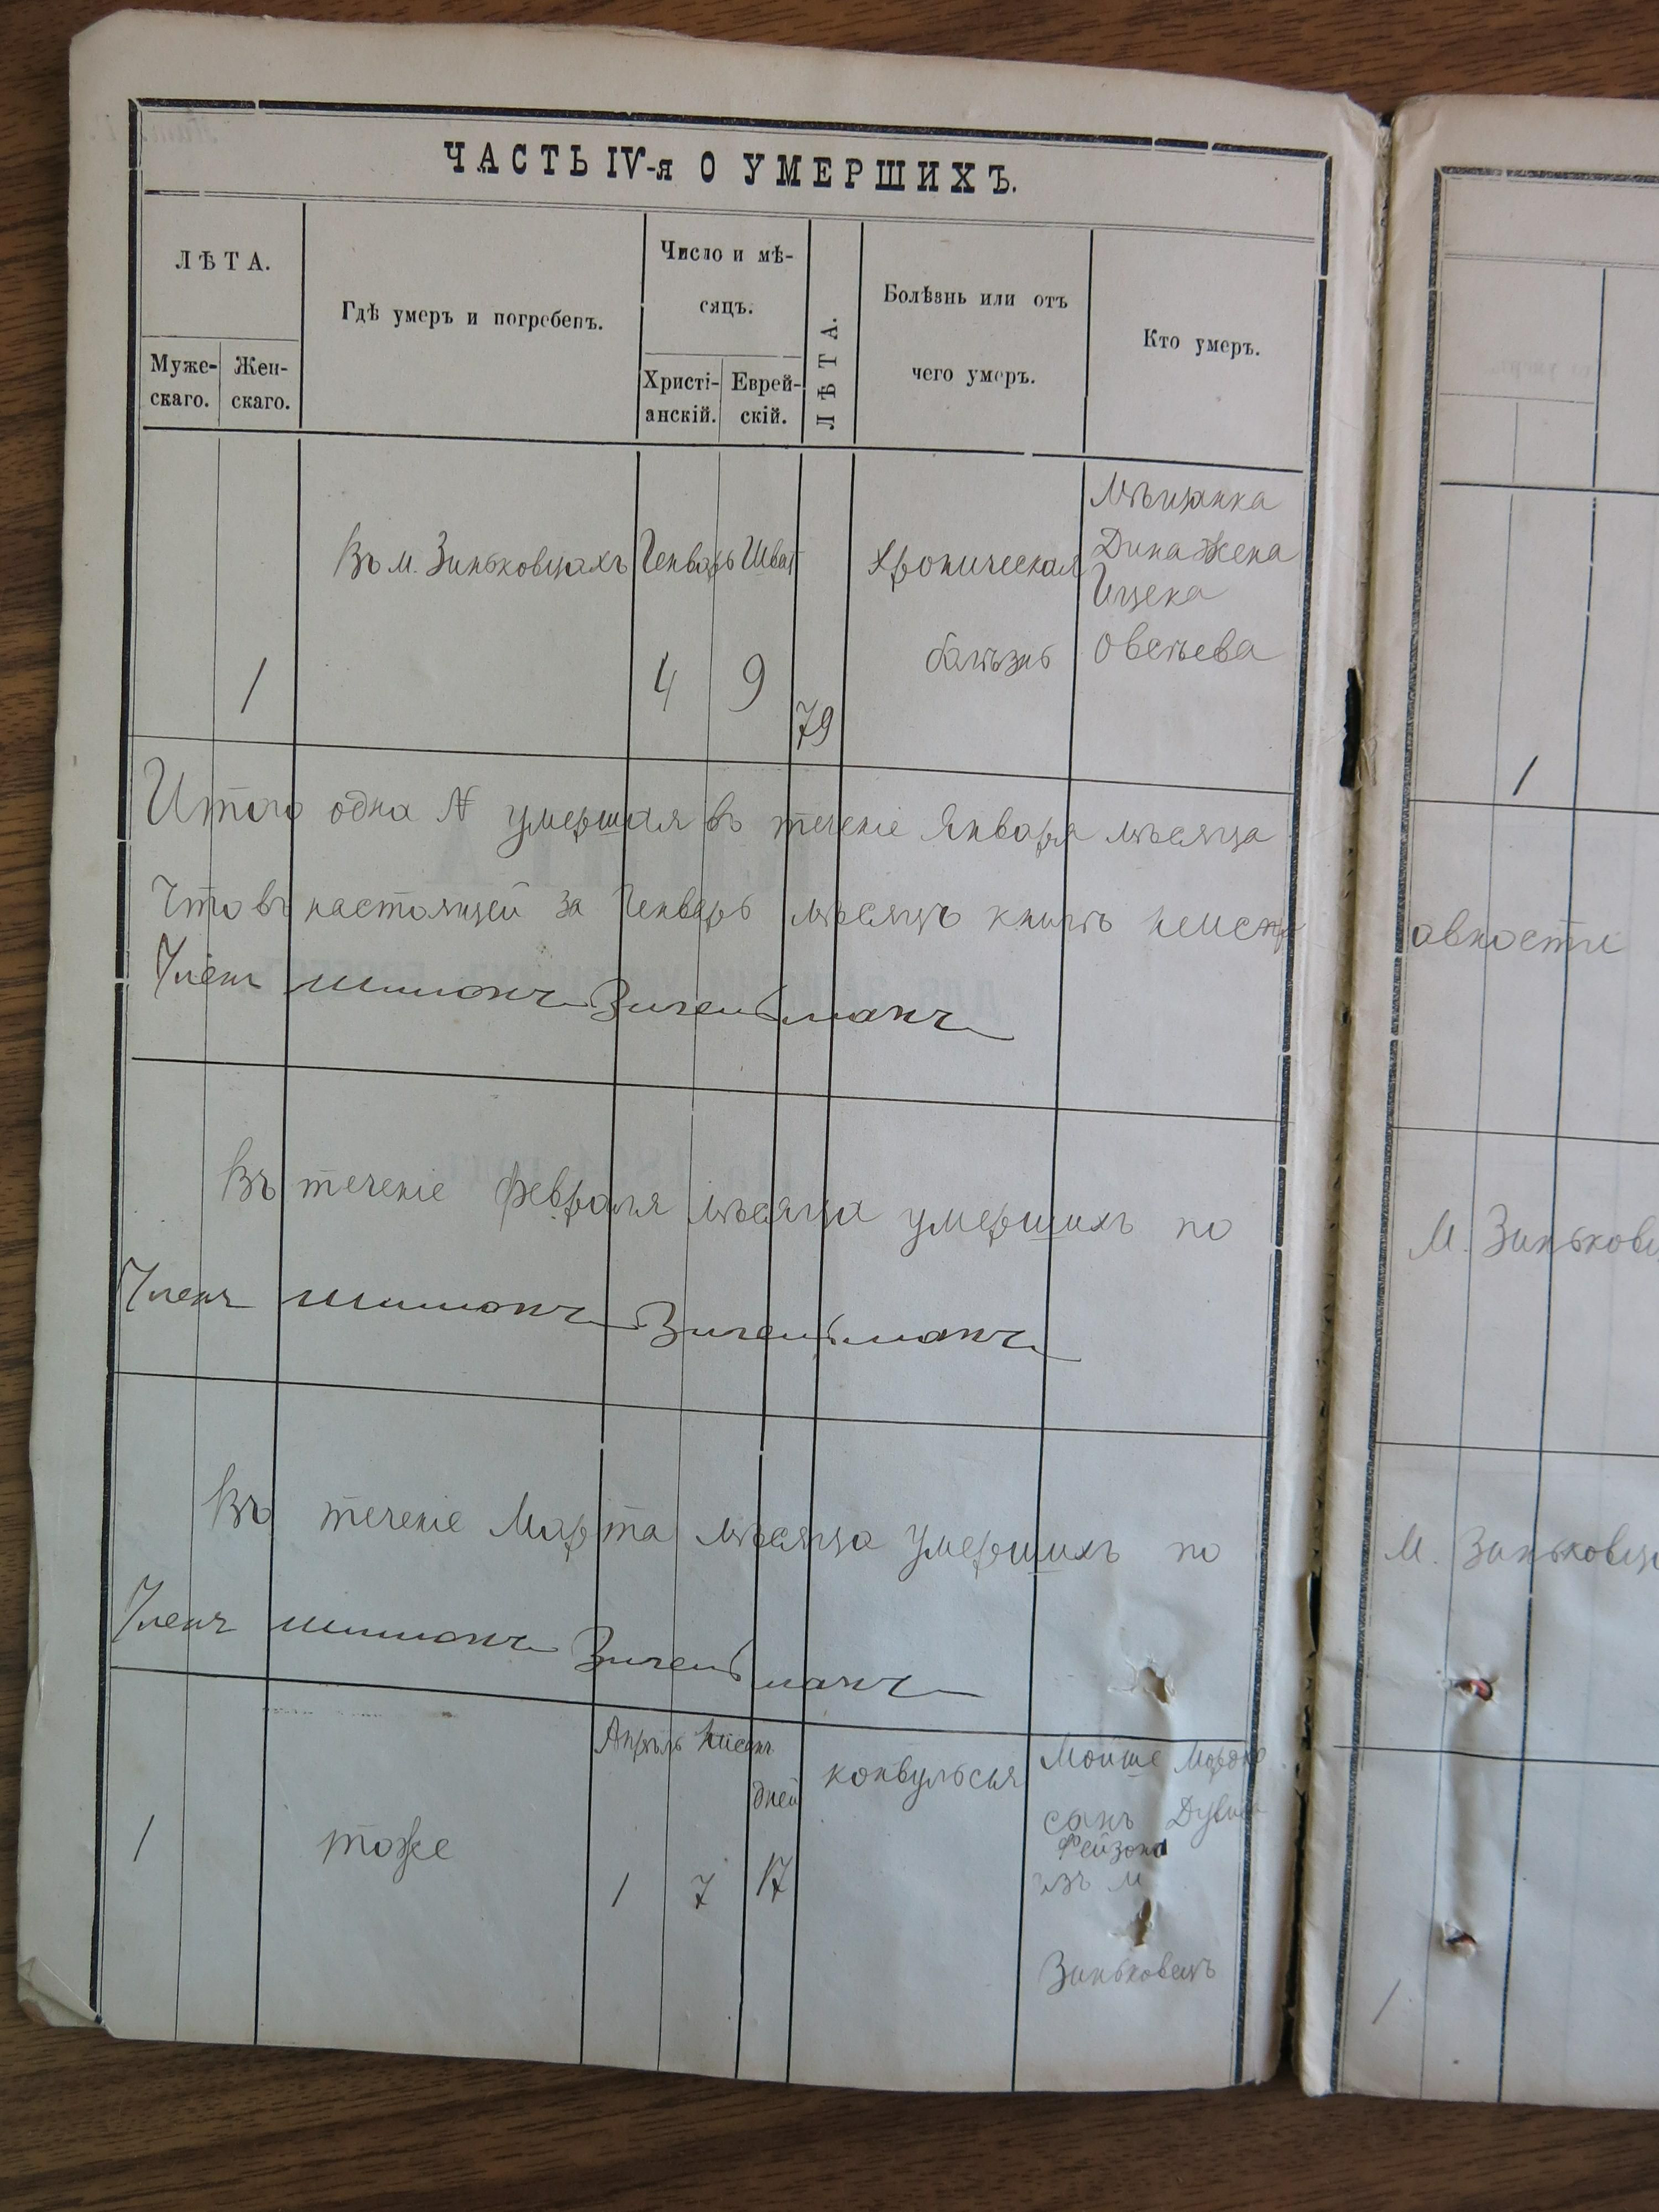 ЧАСТЬ IV-я О УМЕРШИХЪ.
ЛѢТА.
Муже-
скаго.
Жен-
скаго.
Гдѣ умеръ и погребенъ.
Число и мѣ-
сяцъ.
Христі-
анскій.
Еврей-
скій.
ЛѢТА.
Болѣзнь или отъ
чего умеръ.
Кто умеръ.
1
Въ м. Зиньковцахъ
Генварь
4
Шват
9
79
Хроническая
болѣзнь
Мѣщанка
Дина жена
Ицека
Овсѣева
1
Итого одна № умершая въ теченіе Января мѣсяца
Что въ настоящей за Генварь мѣсяцъ книгѣ неиспр
авности
Членъ Шимонъ Зигельманъ
Въ теченіе Февраля мѣсяца умершихъ по
М. Зиньковц
Членъ Шимонъ Зигельманъ
Въ теченіе Марта мѣсяца умершихъ по
М. Зиньковц
Членъ Шимонъ Зигельманъ
1
тоже
Апрѣль
1
Нисонъ
7
дней
17
конвульсія
Мойше Мордко
сынъ
Фейзона
изъ м
Зиньковецъ
1